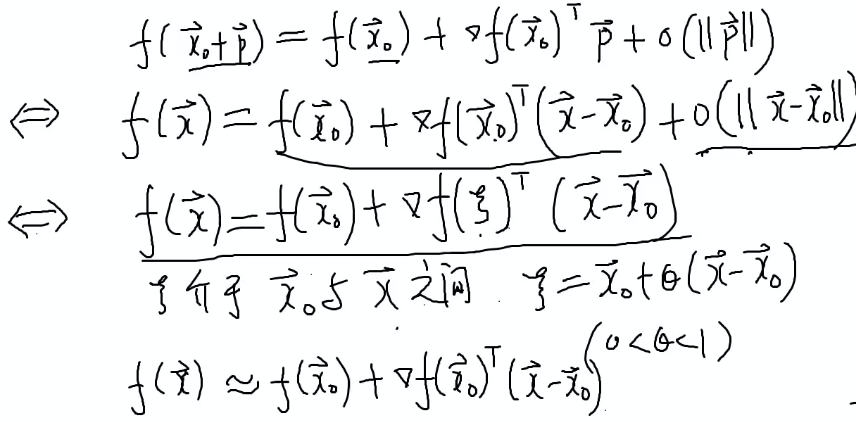 f(x⃗₀+p⃗) = f(x⃗₀) + ∇f(x⃗₀)ᵀ p⃗ + o(‖p⃗‖)
⟺ f(x⃗) = f(x⃗₀) + ∇f(x⃗₀)ᵀ(x⃗-x⃗₀) + o(‖x⃗-x⃗₀‖)
⟺ f(x⃗) = f(x⃗₀) + ∇f(ξ)ᵀ (x⃗-x⃗₀)
ξ介于 x⃗₀与 x⃗ 之间 ξ = x⃗₀+θ(x⃗-x⃗₀)
(0<θ<1)
f(x⃗) ≈ f(x⃗₀) + ∇f(x⃗₀)ᵀ(x⃗-x⃗₀)